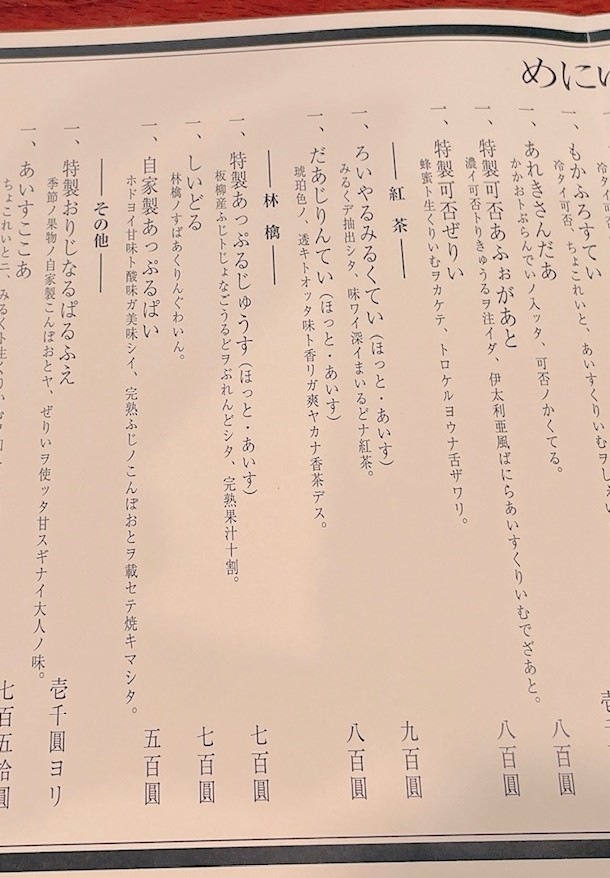 めにゅ
冷タイ可
一、もかふろすてい
冷タイ可否、ちょこれいと、あいすくりいむヲし
一、あれきさんだあ
かかおトぶらんでいノ入ッタ、可否ノかくてる。
八百圓
一、特製可否あふぉがあと
濃イ可否トりきゅうるヲ注イダ、伊太利亜風ばにらあいすくりいむでざあと。
八百圓
一、特製可否ぜりい
蜂蜜ト生くりいむヲカケテ、トロケルヨウナ舌ザワリ。
九百圓
紅茶
一、ろいやるみるくてい（ほっと・あいす）
みるくデ抽出シタ、味ワイ深イまいるどナ紅茶。
八百圓
一、だあじりんてい（ほっと・あいす）
琥珀色ノ、透キトオッタ味ト香リガ爽ヤカナ香茶デス。
林檎
一、特製あっぷるじゅうす（ほっと・あいす）
板柳産ふじトじょなごうるどヲぶれんどシタ、完熟果汁十割。
七百圓
一、しいどる
林檎ノすぱあくりんぐわいん。
七百圓
一、自家製あっぷるぱい
ホドヨイ甘味ト酸味ガ美味シイ、完熟ふじノこんぽおとヲ載セテ焼キマシタ。
五百圓
その他
一、特製おりじなるぱるふえ
季節ノ果物ノ自家製こんぽおとヤ、ぜりいヲ使ッタ甘スギナイ大人ノ味。
壱千圓ヨリ
一、あいすここあ
ちょこれいとニ、みるくト生くりい
七百五拾圓